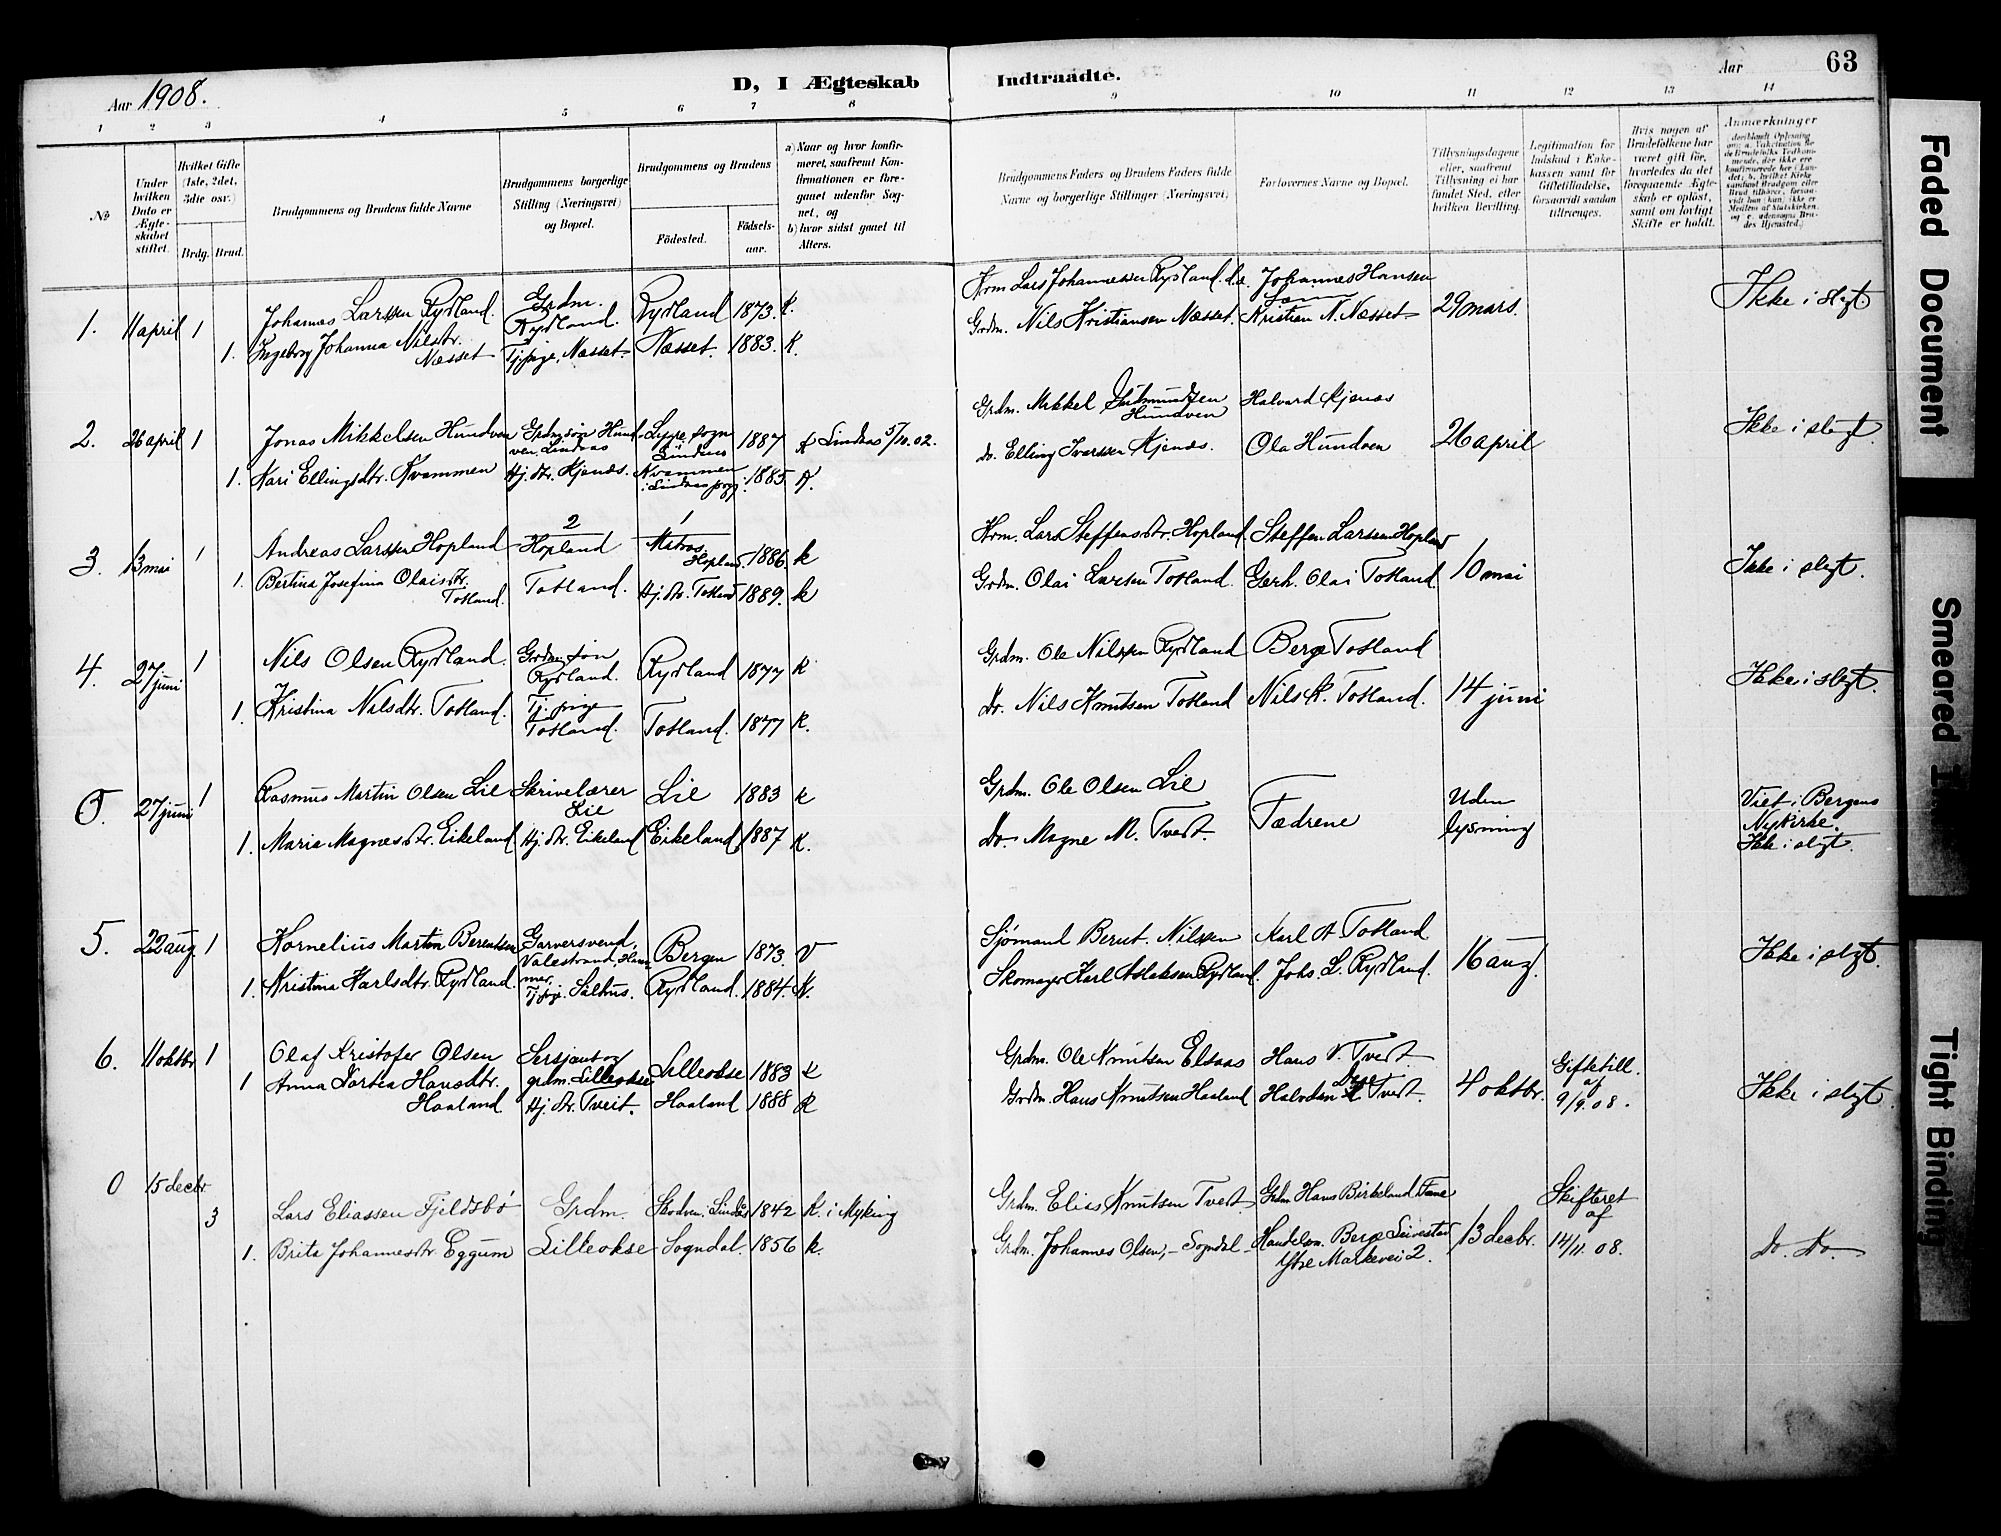 63
Aar 1908.
D, I Ægteskab Indtraadte.
Aar
1 2 3 4 5 6 7 8 9 10 11 12 13 14
No
Under hvilken Dato er Ægteskabet stiftet.
Hvilket Gifte (1ste, 2det, 3die osv.)
Brdg. Brud.
Brudgommens og Brudens fulde Navne
Brudgommens borgerlige Stilling (Næringsvei) og Bopæl.
Brudgommens og Brudens
Fødested.
Fødselsaar.
a) Naar og hvor konfirmeret, saafremt Konfirmationen er foregaaet udenfor Sognet, og
b) hvor sidst gaaet til Alters.
Brudgommens Faders og Brudens Faders fulde Navne og borgerlige Stillinger (Næringsvei)
Forlovernes Navne og Bopæl.
Tillysningsdagene eller, saafremt Tillysning ei har fundet Sted, efter hvilken Bevilling.
Legitimation for Indskud i Enkekassen samt for Giftetilladelse, forsaavidt saadan tiltrænges.
Hvis nogen af Brudefolkene har været gift før, hvorledes da det foregaaende Ægteskab er opløst, samt om lovligt Skifte er holdt.
Anmærkninger
1. 11 april 1 Johannes Larssen Rydland. Grdm. Rydland. Rydland 1873. K. Krm Lars Johannessen Rydland. Johannes Hansen 29 mars. Ikke i slegt
1. Ingeborg Johanna Nilsdtr. Næsset Tj.pige. Næsset. Næsset. 1883. K. Grdm. Nils Kristiansen Næsset. Kristian N. Næsset
2. 26 april 1 Jonas Mikkelsen Hundven Grdm.søn Hundven, Lindaas sogn Lindaas 1887 K Lindaas 5/10. 02. Grdm. Mikkel Hundven Halvard Kjenæs 26 april Ikke i slegt
1. Kari Ellingsdtr. Kvammen Hj. dtr. Kjenæs. Kvammen i Lindaas 1885. K. do. Elling Ivarssen Kjenæs. Ola Hundven
3. 13 mai 1 Andreas Larssen Hopland 2 Hopland 1 Matros. Hopland. 1886. k Krm. Lars Steffensdtr. Hopland. Steffen Larssen Hopland 10 mai Ikke i slegt.
1. Bertina Josefina Olaisdtr. Totland. Totland. Hj. dtr. Totland 1889. k Grdm. Olai Larsen Totland. Gerh. Olai Totland
4. 27 juni 1 Nils Olsen Rydland. Grdm.søn Rydland. Rydland 1877 K Grdm. Ole Nilssen Rydland Berge Totland 14 juni Ikke i slegt.
1. Kristina Nilsdtr. Totland. Tj. pige Totland. Totland. 1877 K. Do. Nils Knutsen Totland Nils K. Totland.
O. 27 juni 1 Rasmus Martin Olsen Lie Skrivelærer Lie Lie 1883 K Grdm. Ole Olsen Lie Fædrene Uden lysning Viet i Bergens Nykirke. Ikke i slegt.
1. Maria Magnesdtr. Eikeland. Hj. dtr. Eikeland Eikeland 1887 K. Do. Magne M. Tveit.
5. 22 aug. 1 Kornelius Martin Berentsen Garversvend, Valestrand, Hammer, Bergen 1873. V Sjømand Bernt. Nilssen Karl A. Totland 16 aug. Ikke i slegt.
1. Kristina Karlsdtr. Rydland. Tj.pige. Salhus. Rydland. 1884. K. Skomager Karl Aslaksen Rydland. Johs L. Rydland.
6. 11 oktbr 1 Olaf Kristofer Olsen Sersjant og grdm. Lilleokse Lilleokse 1883 K Grdm. Ole Knutsen Elsaas Hans V. Tveit 4 oktbr. Giftetill. af 9/9. 08. Ikke i slegt.
1 Anna Dortea Hansdtr. Haaland Hj. dtr. Tveit. Haaland 1888 K Grdm. Hans Knutsen Haaland Halvdan Tveit.
0 15 decbr. 3 Lars Eliassen Fjeldsbø Grdm. Skodven i Lindaas 1842 K. i Myking Grdm. Elias Knutsen Tveit Grdm Hans Birkeland Fane 13 decbr. Skifteret af 14/11. 08. Do. Do.
1. Brita Johannesdtr. Eggum Lilleokse Sogndal. 1856 k. Grdm. Johannes Olsen, Sogndal Handelsm. Berge Seivestad Ystre Markevei 2.
Faded Document
Smeared
Tight Binding